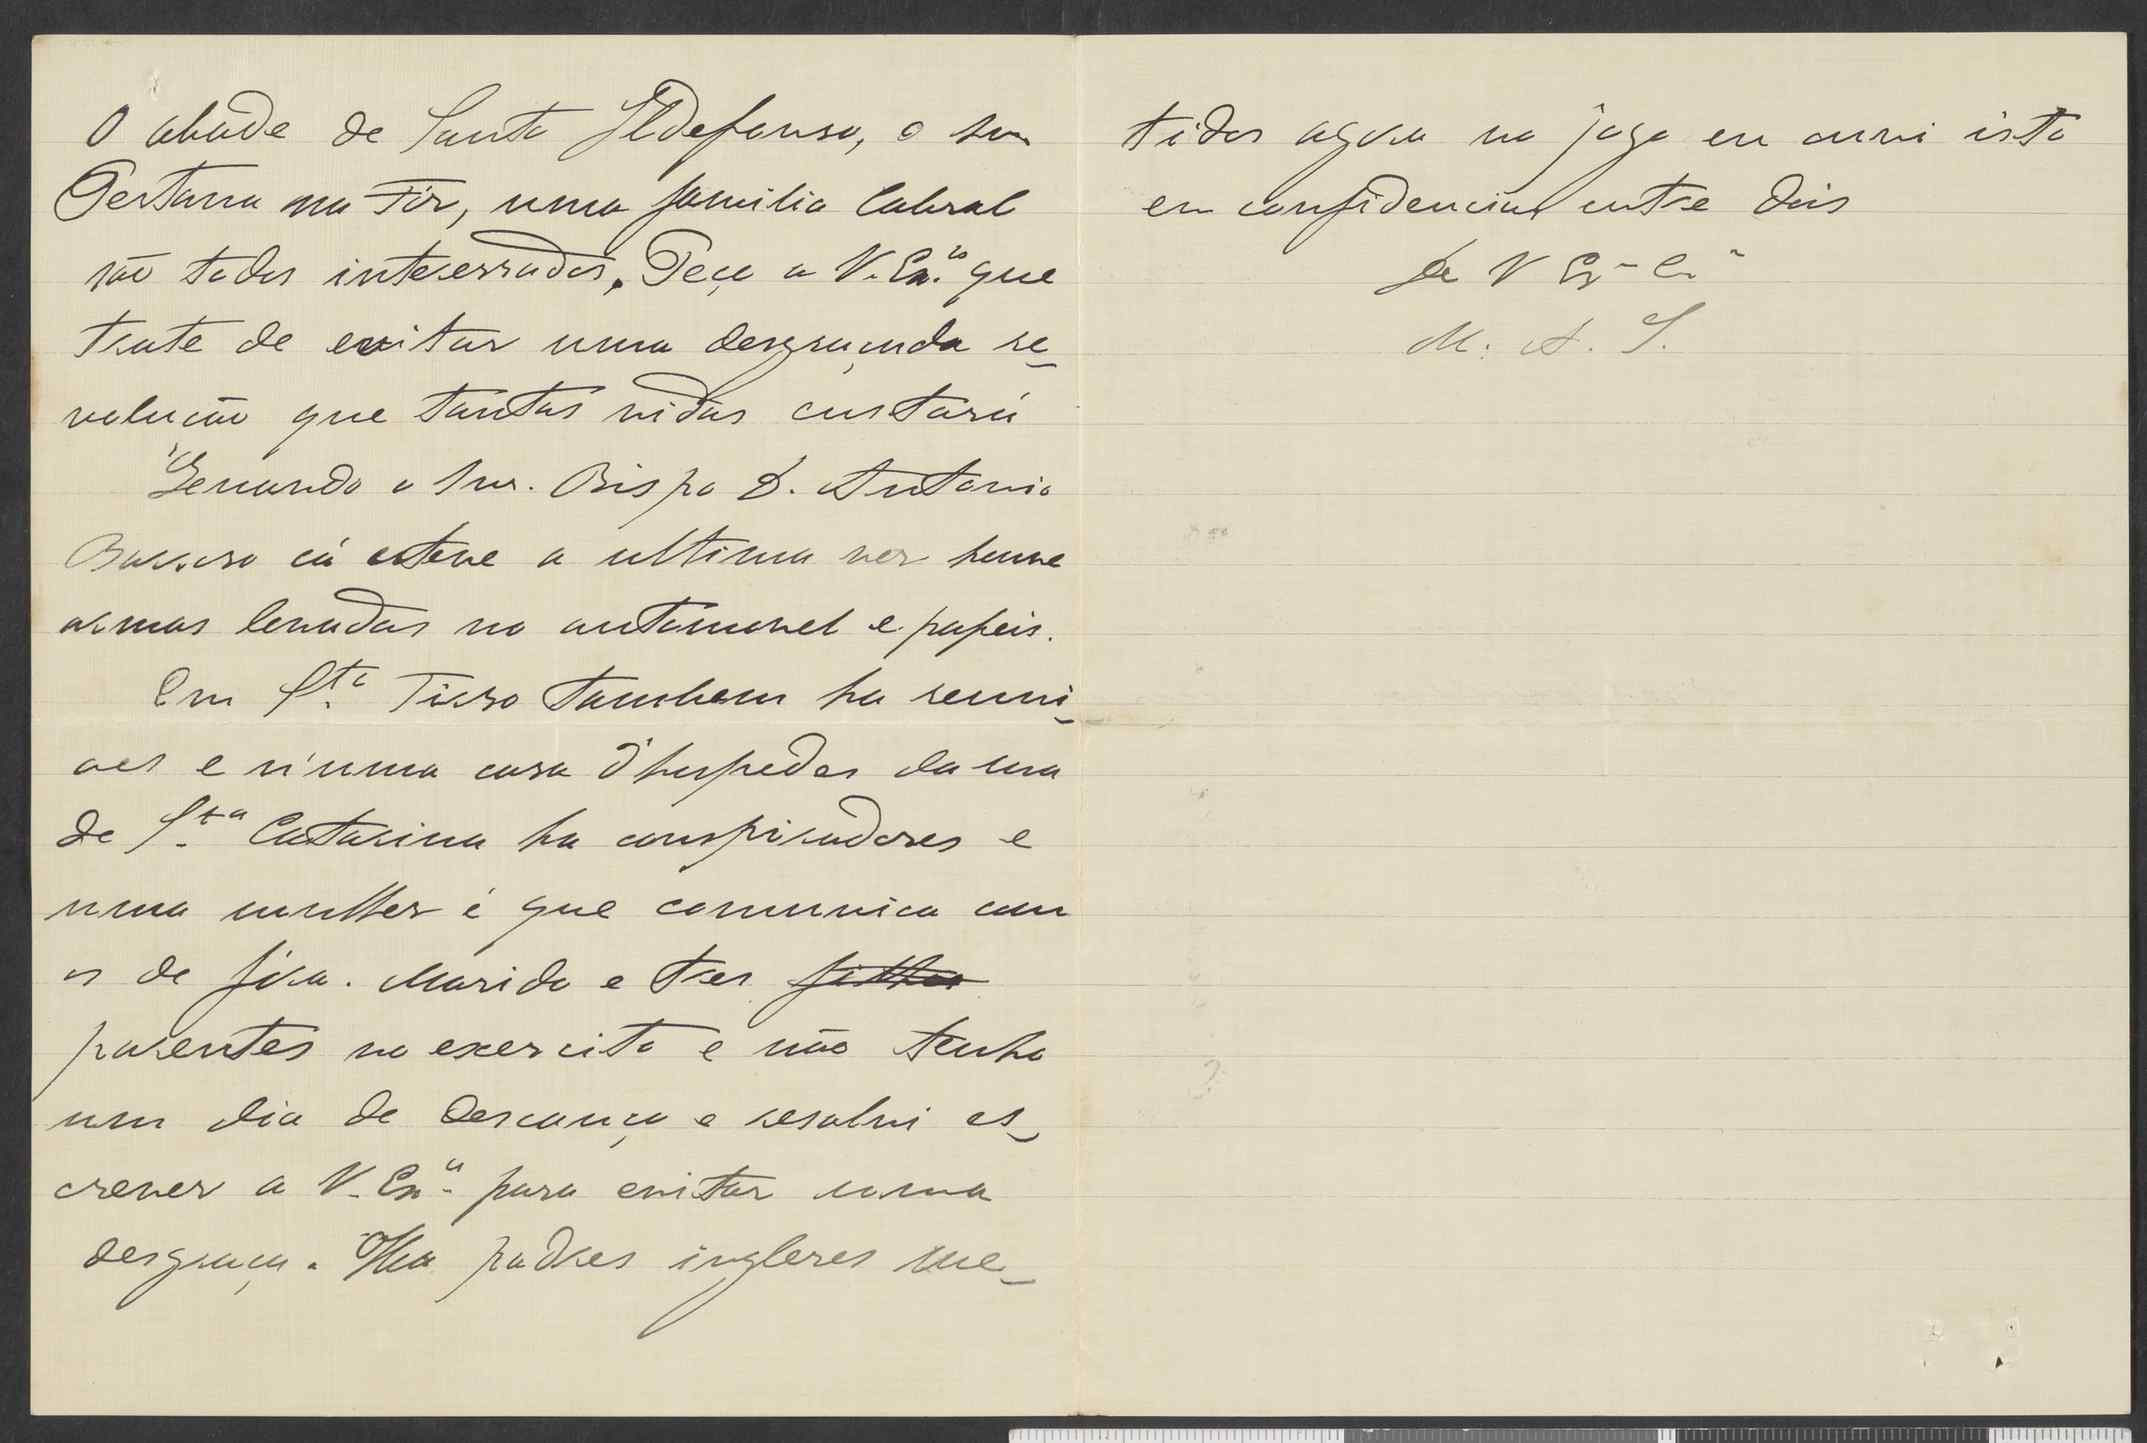 O abade de Santo Ildefonso, o snr
Pestana na Foz, uma familia Cabral
são todos interessados. Peço a V. Exª que
trate de evitar uma desgraçada re-
volução que tantas vidas custará
Quando o Snr. Bispo D. Antonio
Barroso cá esteve a ultima vez houve
armas levadas no automovel e papeis.
Em Stº Tirso tambem ha reuni-
oes e n'uma casa d'hospedes da rua
de Stª Catarina ha conspiradores e
uma mulher é que comunica com
os de fóra. Marido e tres filhos
parentes no exercito e não tenho
um dia de descanço e resolvi es-
crever a V. Exª para evitar uma
desgraça. Ha padres ingleses me-
tidos agora no jogo eu ouvi isto
em confidencias entre dois
De V Exª Crª
M. A. S.